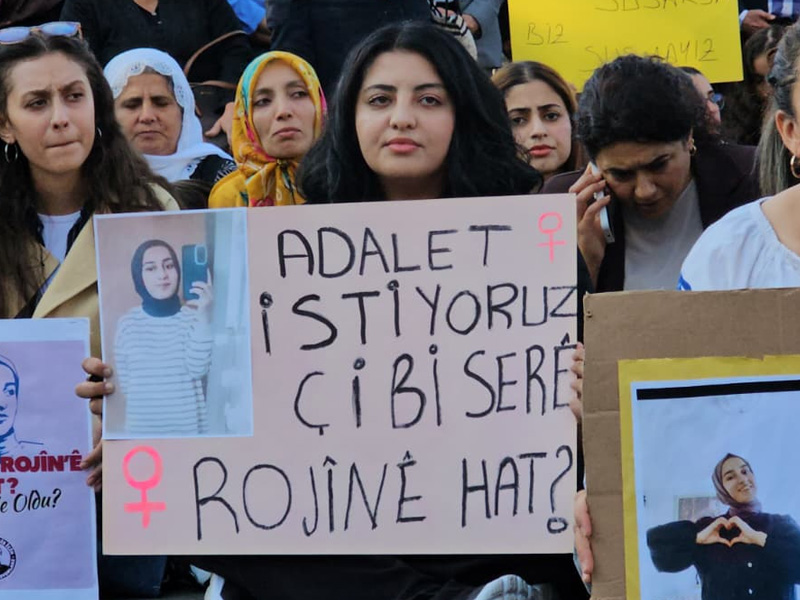 SUSARSA
BİZ
SUSMAYIZ
ADALET
İSTİYORUZ
ÇİBİ SERÊ
ROJÎNÊ HAT?
ROJÎN'Ê
T?
e Oldu?